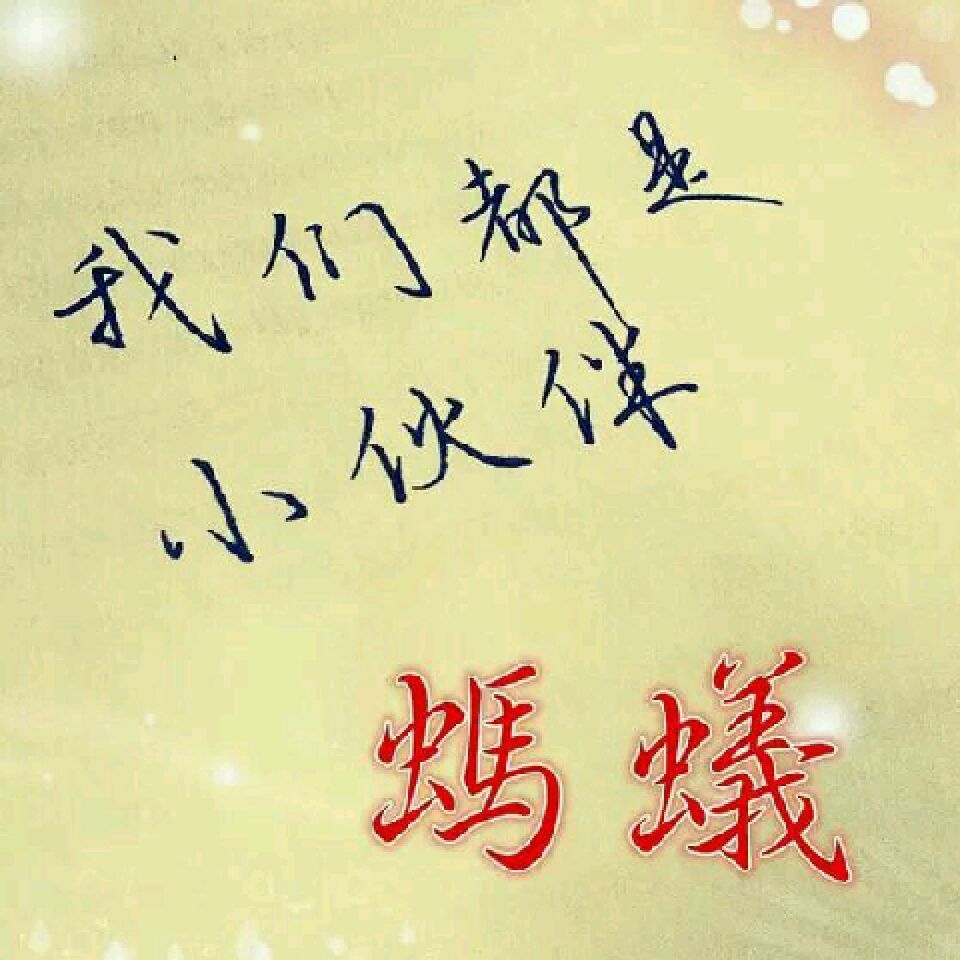 我们都是
小伙伴
螞蟻